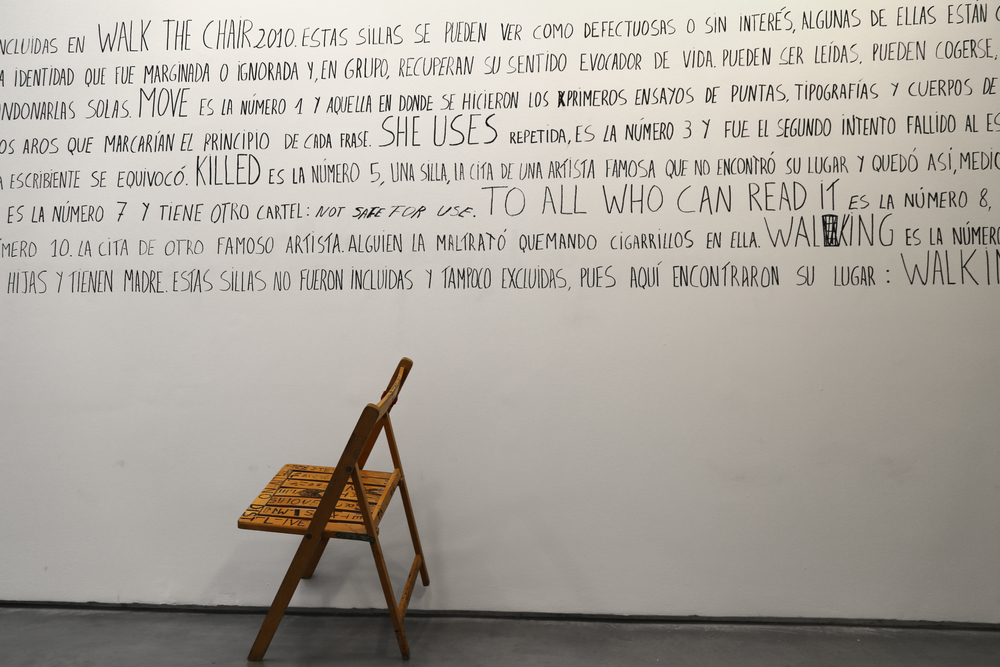 NCLUIDAS EN WALK THE CHAIR 2010. ESTAS SILLAS SE PUEDEN VER COMO DEFECTUOSAS O SIN INTERÉS, ALGUNAS DE ELLAS ESTÁN
A IDENTIDAD QUE FUE MARGINADA O IGNORADA Y, EN GRUPO, RECUPERAN SU SENTIDO EVOCADOR DE VIDA. PUEDEN SER LEÍDAS, PUEDEN COGERSE,
NDONARLAS SOLAS. MOVE ES LA NÚMERO 1 Y AQUELLA EN DONDE SE HICIERON LOS PRIMEROS ENSAYOS DE PUNTAS, TIPOGRAFÍAS Y CUERPOS DE
OS AROS QUE MARCARÍAN EL PRINCIPIO DE CADA FRASE. SHE USES REPETIDA, ES LA NÚMERO 3 Y FUE EL SEGUNDO INTENTO FALLIDO AL ES
A ESCRIBIENTE SE EQUIVOCÓ. KILLED ES LA NÚMERO 5, UNA SILLA, LA CITA DE UNA ARTISTA FAMOSA QUE NO ENCONTRÓ SU LUGAR Y QUEDÓ ASÍ, MEDIO
ES LA NÚMERO 7 Y TIENE OTRO CARTEL: NOT SAFE FOR USE. TO ALL WHO CAN READ IT ES LA NÚMERO 8,
MERO 10. LA CITA DE OTRO FAMOSO ARTISTA. ALGUIEN LA MALTRATÓ QUEMANDO CIGARRILLOS EN ELLA. WALKING ES LA NÚMERO
HIJAS Y TIENEN MADRE. ESTAS SILLAS NO FUERON INCLUIDAS Y TAMPOCO EXCLUIDAS, PUES AQUÍ ENCONTRARON SU LUGAR: WALKIN